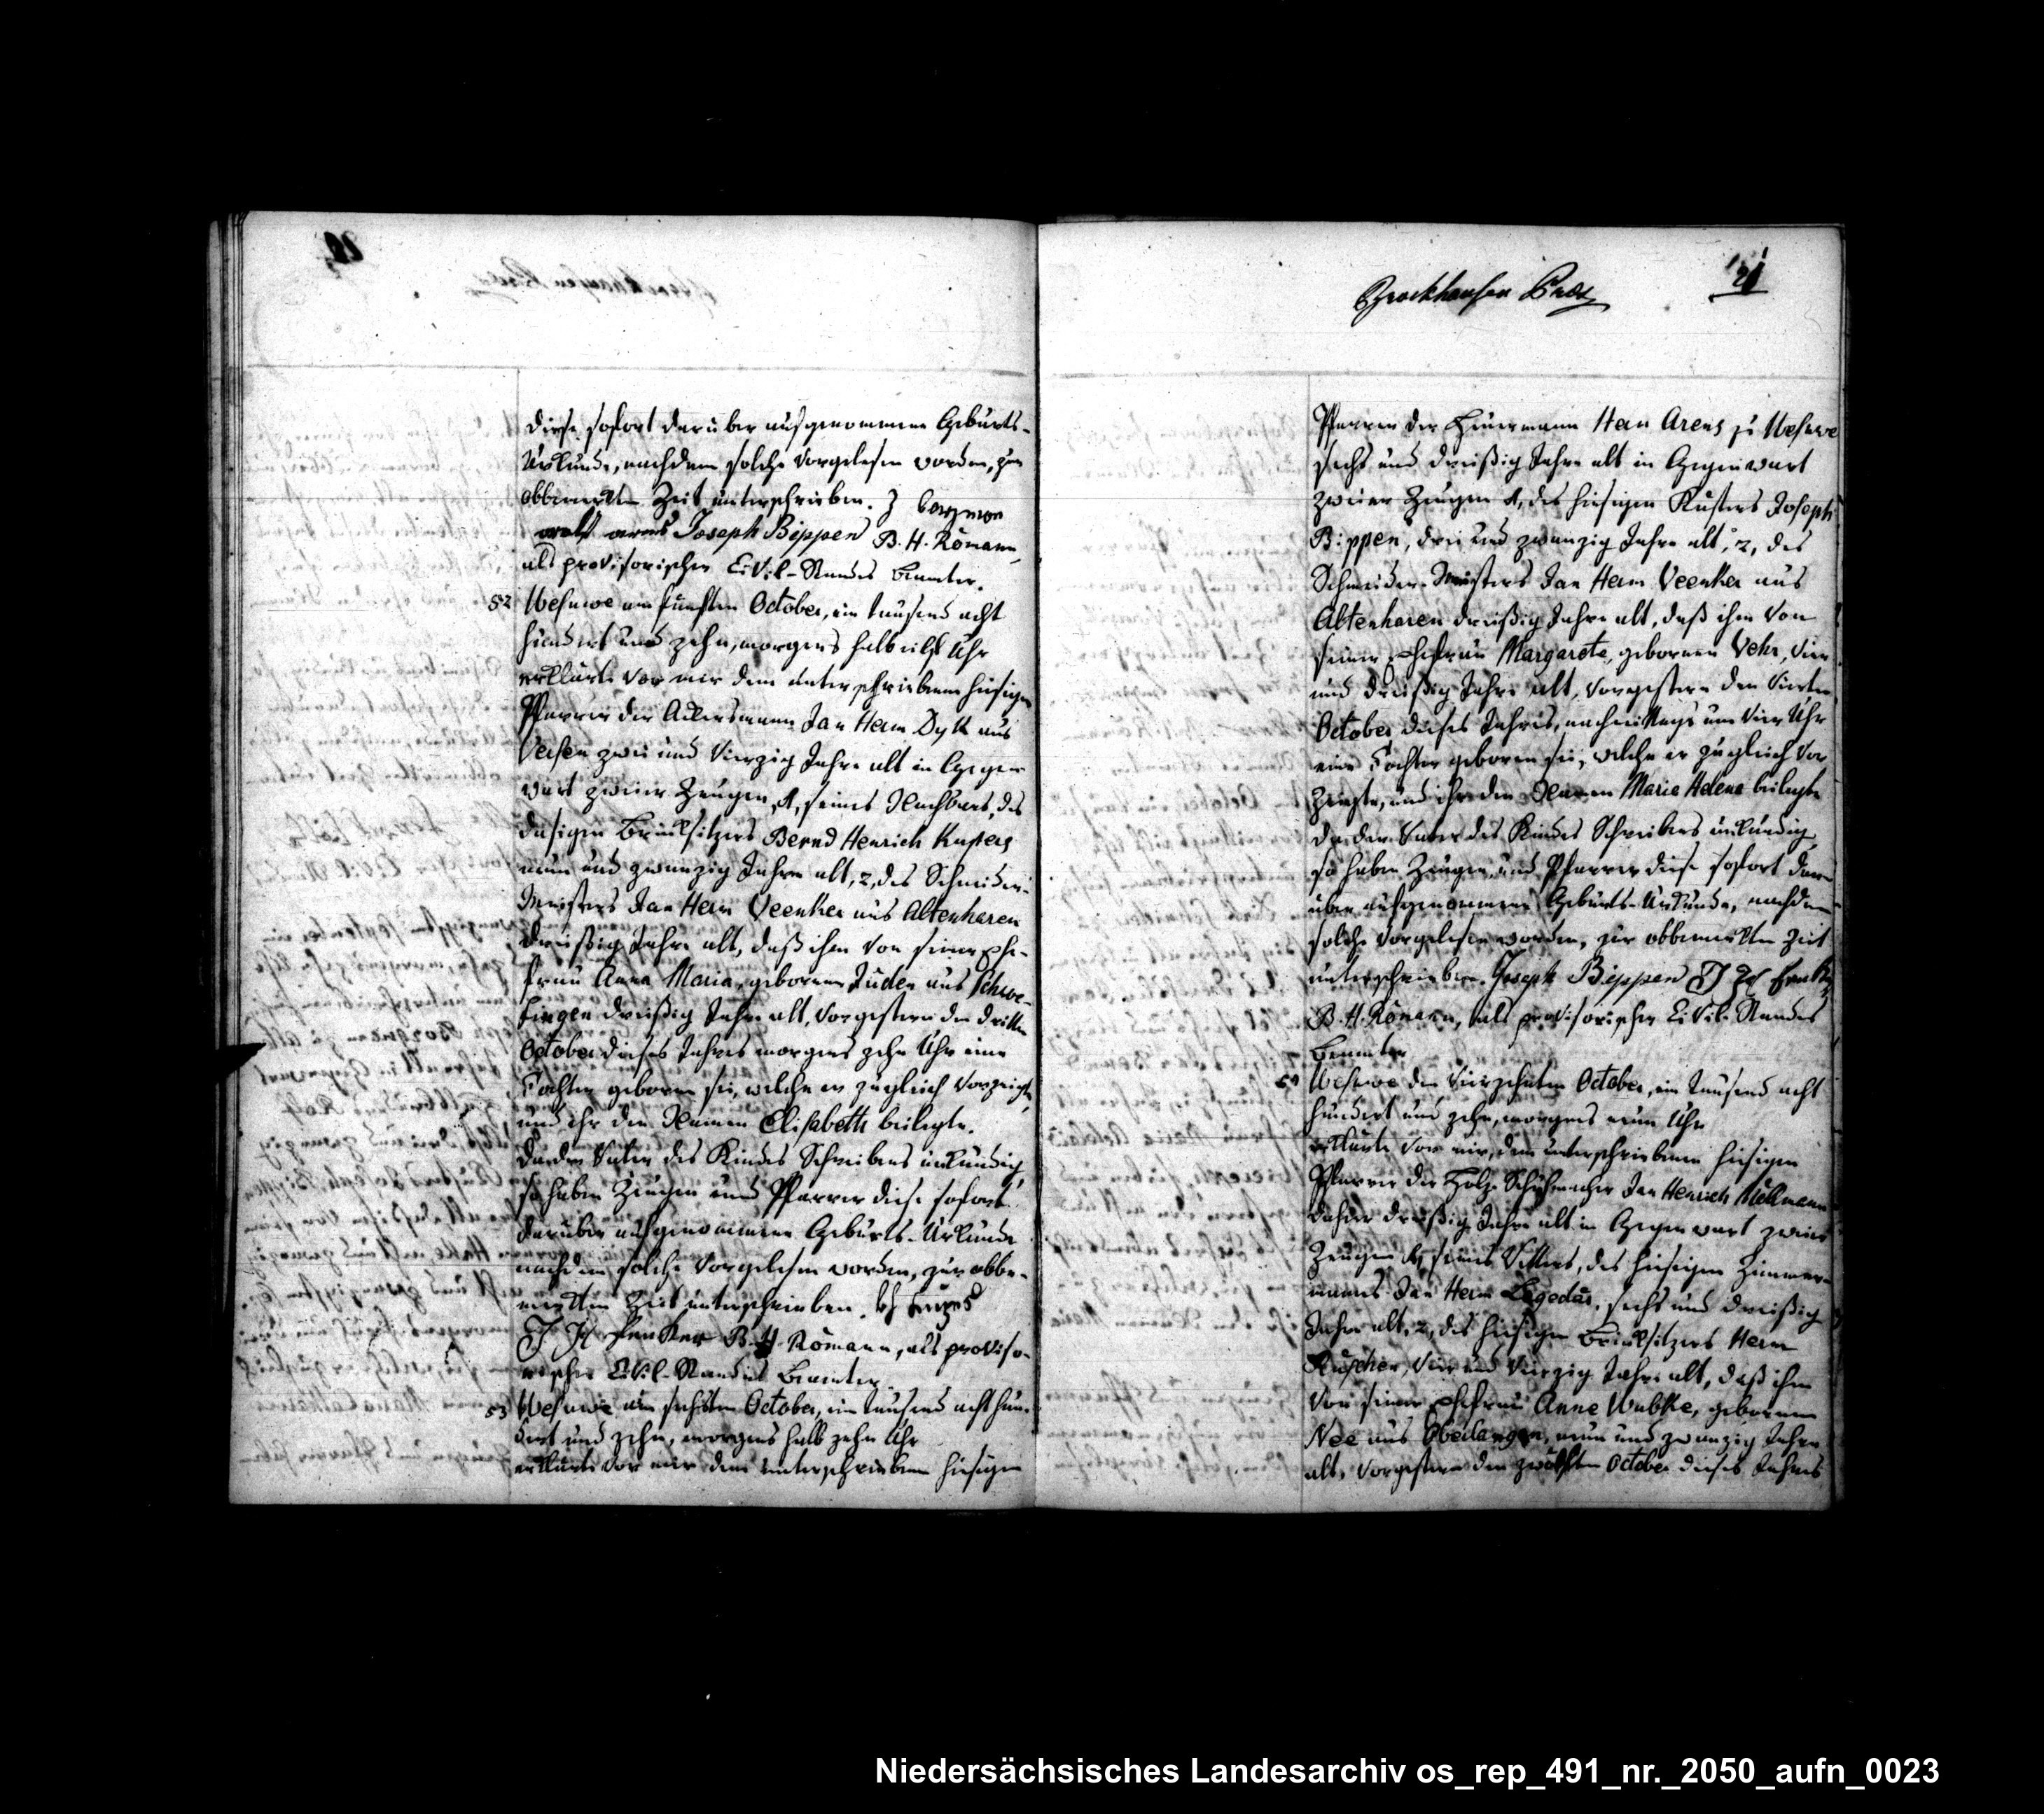 diese sofort darüber aufgenommene Geburts-
Urkunde, nachdem solche vorgelesen worden, zur
obbemerkten Zeit unterschrieben. J borgmon
Joseph Bippen B. H. Römann,
als provisorischer Civil-Standes Beamter.
52 Wesuwe am fünften October, ein tausend acht
hundert und zehn, morgens halb eilf Uhr
erklärte vor mir dem unterschriebenen hiesigen
Pfarrer der Ackersmann Jan Herm Dyk aus
Versen zwei und vierzig Jahre alt in Gegen-
wart zweier Zeugen 1, seines Nachbars, des
dasigen Brinksitzers Bernd Henrich Kupers
neun und zwanzig Jahre alt, 2, des Schneider-
Meisters Jan Herm Veenker aus Altenharen
dreißig Jahre alt, daß ihm von seiner Ehe-
frau Anna Maria, gebornen Jüden aus Schwe-
fingen dreißig Jahre alt, vorgestern den dritten
October dieses Jahres morgens zehn Uhr eine
Tochter geboren sei, welche er zugleich vorzeigte,
und ihr den Namen Elisabeth beilegte.
Da der Vater des Kindes Schreibens unkundig,
so haben Zeugen und Pfarrer diese sofort
darüber aufgenommene Geburts-Urkunde
nachdem solche vorgelesen worden, zur obbe-
merkten Zeit unterschrieben.
B. H. Römann, als proviso-
rischer Civil-Standes Beamter
53 Wesuwe am sechsten October, ein tausend acht hun-
dert und zehn, morgens halb zehn Uhr
erklärte vor mir dem unterschriebenen hiesigen
21
Brockhausen
Pfarrer der Heuermann Herm Arens zu Wesuwe
sechs und dreißig Jahre alt in Gegenwart
zweier Zeugen 1, des hiesigen Küsters Joseph
Bippen, drei und zwanzig Jahre alt, 2, des
Schneider-Meisters Jan Herm Veenker aus
Altenharen dreißig Jahre alt, daß ihm von
seiner Ehefrau Margarete, gebornen Vehr, vier
und dreißig Jahre alt, vorgestern den vierten
October dieses Jahres, nachmittags um vier Uhr
eine Tochter geboren sei, welche er zugleich vor
zeigte, und ihr den Namen Maria Helena beilegte
Da der Vater des Kindes Schreibens unkundig,
so haben Zeugen und Pfarrer diese sofort dar-
über aufgenommene Geburts-Urkunde, nachdem
solche vorgelesen worden, zur obbemerkten Zeit
unterschrieben. Joseph Bippen
B. H. Römann, als provisorischer Civil-Standes
Beamter
54 Wesuwe den vierzehnten October, ein tausend acht
hundert und zehn, morgens neun Uhr
erklärte vor mir, dem unterschriebenen hiesigen
Pfarrer der Holz-Schuhmacher Jan Henrich
dahier dreißig Jahre alt in Gegenwart zweier
Zeugen 1, seines Vetters, des hiesigen Zimmer-
manns Jan Herm sechs und dreißig
Jahre alt, 2, des hiesigen Brinksitzers Herm
vier und vierzig Jahre alt, daß ihm
von seiner Ehefrau Anna Wubke, gebornen
Nee aus Oberlangen, neun und zwanzig Jahre
alt, vorgestern den zwölften October dieses Jahres
Niedersächsisches Landesarchiv os_rep_491_nr._2050_aufn_0023